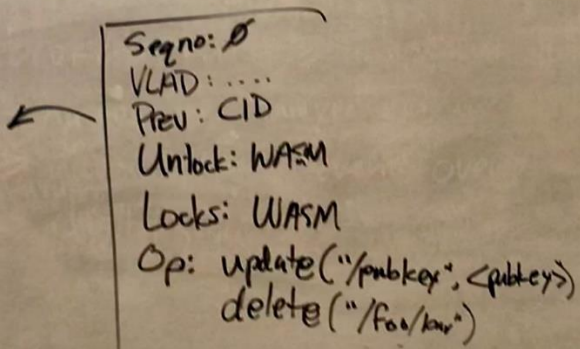 Seqno: Ø
VLAD: ....
Prev: CID
Unlock: WASM
Locks: WASM
Op: update("/pubkey", <pubkey>)
delete("/foo/bar")